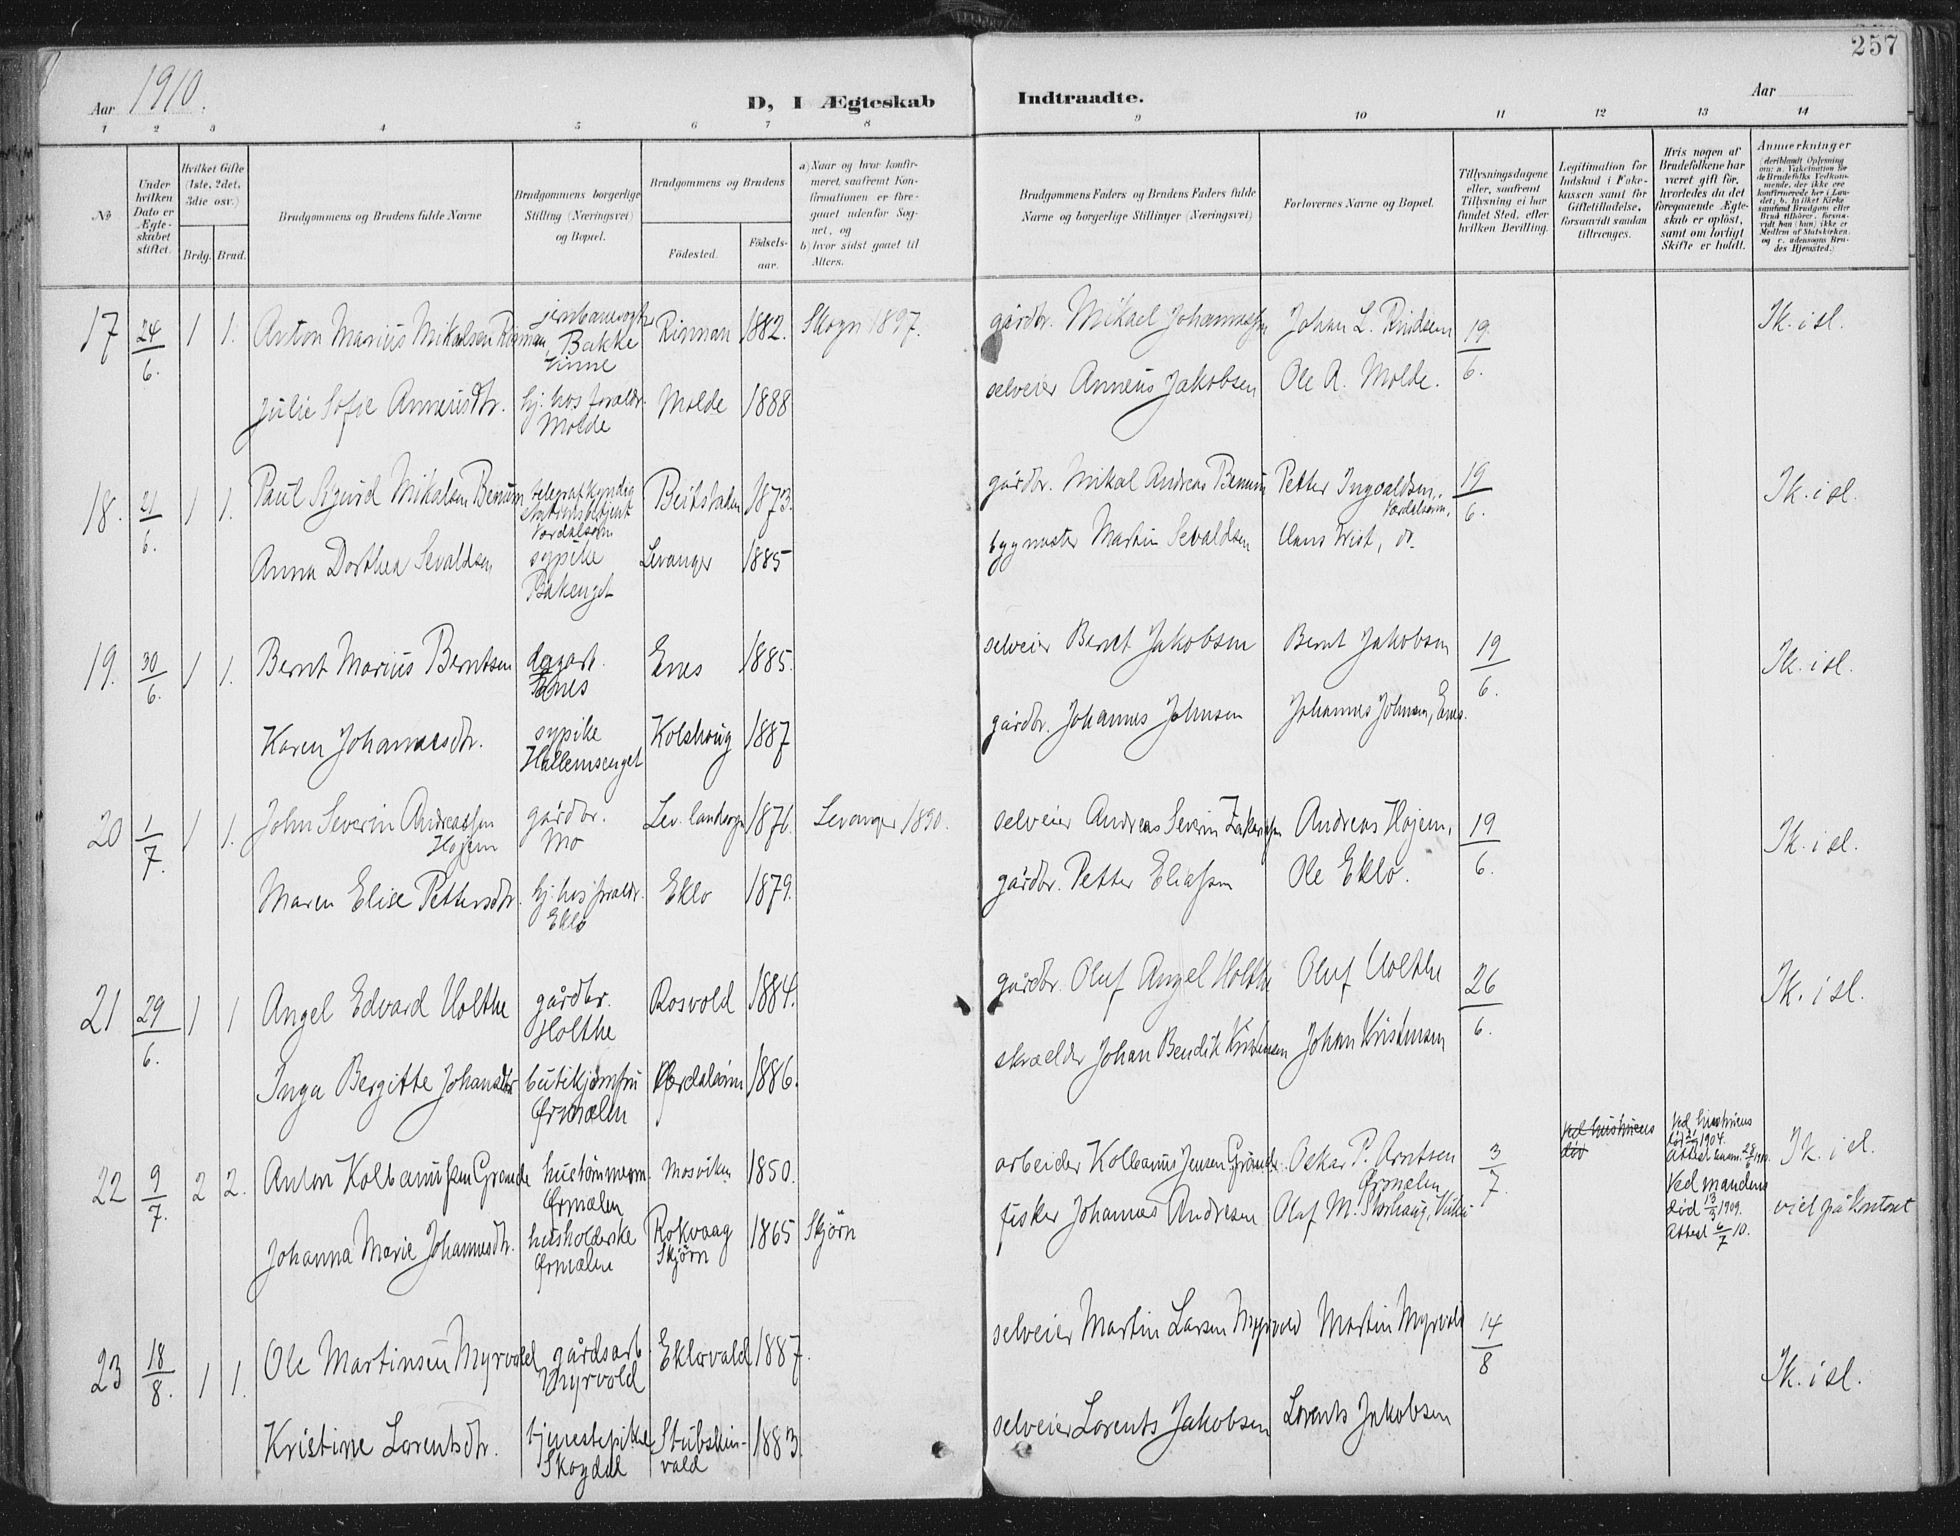 257
Aar 1910.
D, I Ægteskab Indtraadte.
Aar
1 2 3 4 5 6 7 8 9 10 11 12 13 14
№
Under hvilken Dato er Ægteskabet stiftet.
Hvilket Gifte (1ste, 2det, 3die osv.)
Brdg. Brud.
Brudgommens og Brudens fulde Navne
Brudgommens borgerlige Stilling (Næringsvei) og Bopæl.
Brudgommens og Brudens
Fødested.
Fødselsaar.
a) Naar og hvor konfirmeret, saafremt Konfirmationen er foregaaet udenfor Sognet, og
b) hvor sidst gaaet til Alters.
Brudgommens Faders og Brudens Faders fulde Navne og borgerlige Stillinger (Næringsvei)
Forlovernes Navne og Bopæl.
Tillysningsdagene eller, saafremt Tillysning ei har fundet Sted, efter hvilken Bevilling.
Legitimation for Indskud i Enkekassen samt for Giftetilladelse, forsaavidt saadan tiltrænges.
Hvis nogen af Brudefolkene har været gift før, hvorledes da det foregaaende Ægteskab er opløst, samt om lovligt Skifte er holdt.
Anmerkninger (deriblandt Oplysning om: a. Vakcination for de Brudefolks Vedkommende, der ikke ere konfirmerede her i Landet; b. hvilket Kirkesamfund Brudgom eller Brud tilhører, forsaavidt han (hun) ikke er Medlem af Statskirken, og c. udensogns Brudes Hjemsted.)
17 24/6. 1 1. Anton Marius Mikalsen Rinnan, jernbanevogter Bakke Sinne Rinnan 1882. Skogn 1897. gårdbr. Mikael Johannessen Johan L. Rindsem 19/6. Ik. i sl.
Julie Sofie Anneusdtr. hj. hos foreldr. Molde Molde 1888 selveier Anneus Jakobsen Ole A. Molde.
18. 21/6. 1 1. Paul Sigurd Mikalsen Benum telegrafkyndig Stationsbetjent Værdalsøren Beitstaden 1873. gårdbr. Mikal Andreas Benum Petter Ingvaldsen, Værdalsøren, 19/6. Ik. i sl.
Anna Dorthea Sevaldsen sypike Bakenget Levanger 1885 bygmester Martin Sevaldsen Claus Wist, do.
19. 30/6. 1 1. Bernt Marius Berntsen dagarb. Enes Enes 1885. selveier Bernt Jakobsen Bernt Jakobsen 19/6. Ik. i sl.
Karen Johannesdtr. sypike Hallemsenget Kolshaug 1887 gårdbr. Johannes Johnsen Johannes Johnsen, Enes.
20 1/7. 1 1. John Severin Andreassen Hojem gårdbr. Mo Lev. landsogn 1876. Levanger 1890. selveier Andreas Severin Zakariassen Andreas Hojem, 19/6. Ik. i sl.
Maren Elise Pettersdtr. hj. hos foreldr. Eklo Eklo 1879. gårdbr. Petter Eliassen Ole Eklo.
21 29/6. 1 1 Angel Edvard Holthe gårdbr. Holthe Rosvold 1884. gårdbr. Oluf Angel Holthe Oluf Holthe 26/6. Ik. i sl.
Inga Bergitte Johansdtr butikjomfru Ørmælen Værdalsøren 1886. skrædder Johan Bendik Kristensen Johan Kristensen
22 9/7. 2 2. Anton Kolbanussen Grande hustømmerm. Ørmælen Mosviken 1850. arbeider Kolbanus Jensen Grande. Oskar P. Arntsen Ørmælen 3/7. ved hustruens død Ved hustruens død 1904. Ik. i sl.
Johanna Marie Johannesdtr. husholderske Ørmælen Rokvaag Skjørn 1865 Skjørn fisker Johannes Andresen Olaf M. Storhaug, Ved mandens død 13/3 1909. Attest 6/7 10. viet på kontoret
23 18/8. 1 1. Ole Martinsen Myrvold gårdsarb Myrvold Eklovald 1887. selveier Martin Larsen Myrvold Martin Myrvold 14/8 Ik. i sl.
Kristine Lorentsdtr. tjenestepike Skogdal Stubskinvald 1883. selveier Lorents Jakobsen Lorents Jakobsen